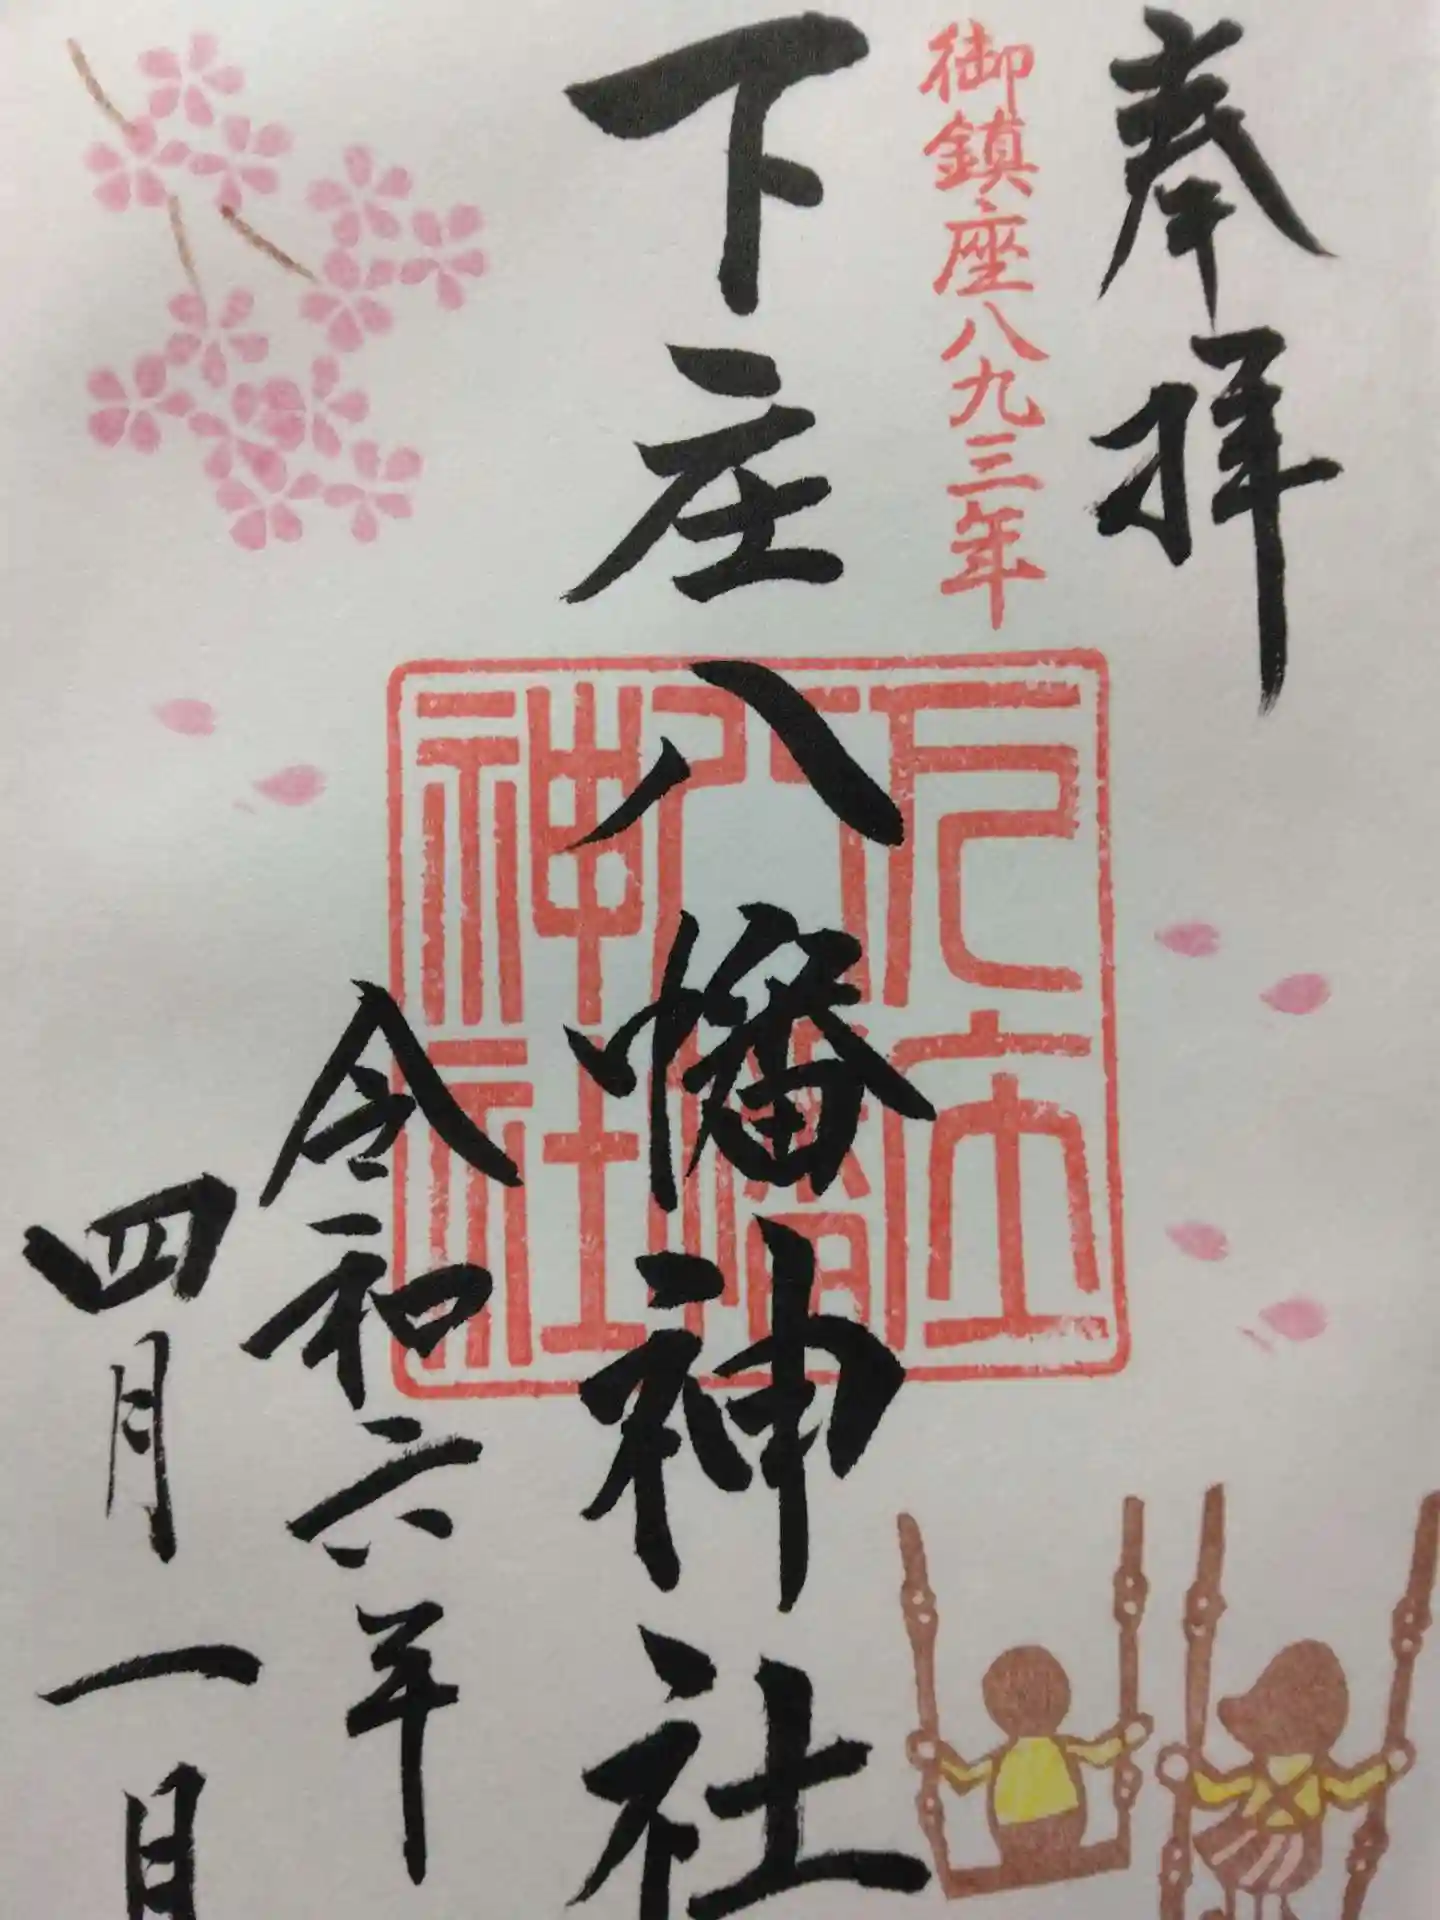 奉拝
御鎮座八九三年
下庄八幡神社
下庄
八幡
神社
令和六年
四月一日